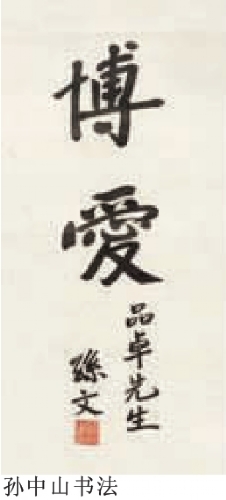 博愛
品卓先生
孫文
孙中山书法